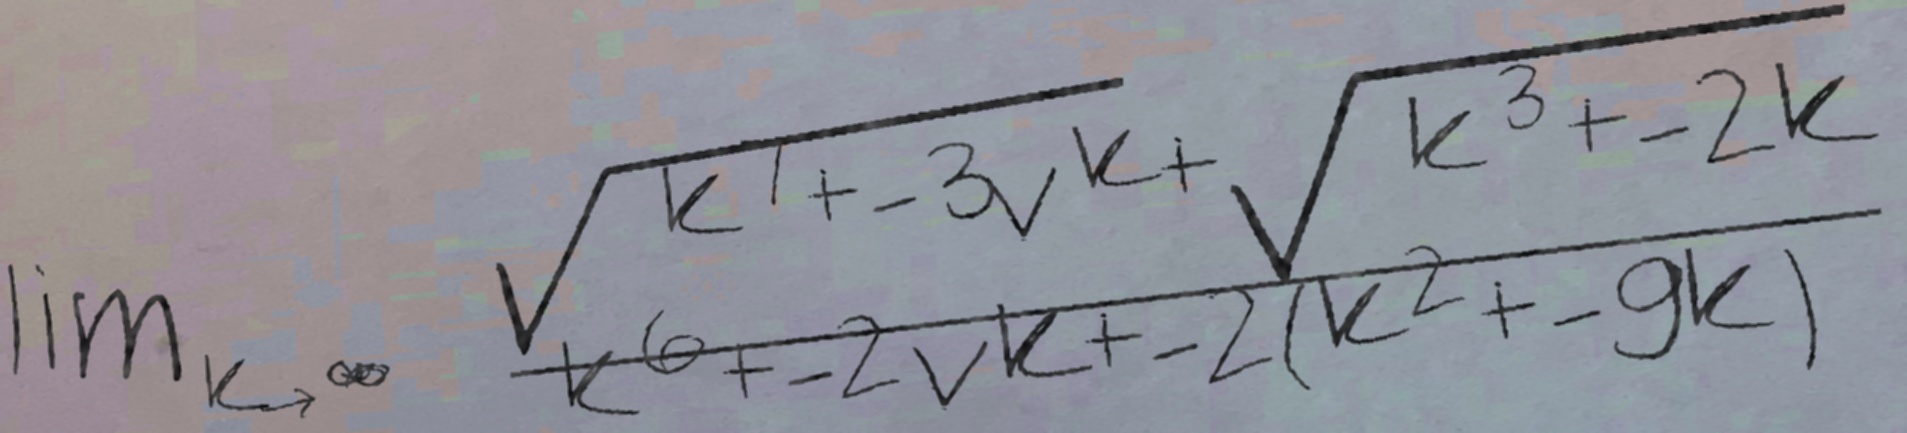 \lim_{k \to \infty} \frac{\sqrt{k^1 + -3\sqrt{k}} + \sqrt{k^3 + -2k}}{k^6 + -2\sqrt{k} + -2(k^2 + -9k)}